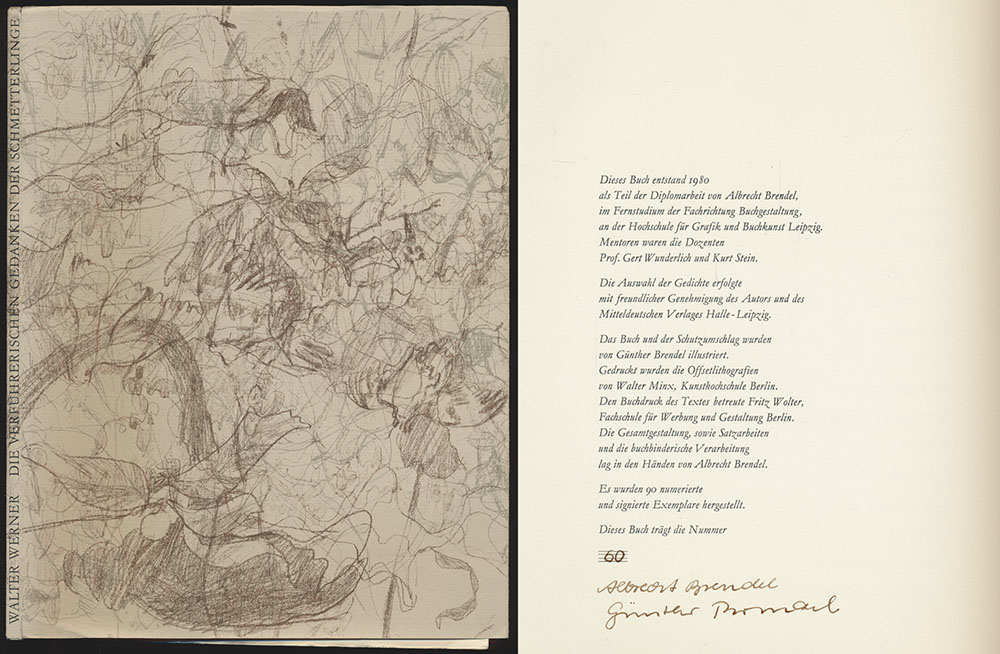 WALTER WERNER DIE VERFÜHRERISCHEN GEDANKEN DER SCHMETTERLINGE
Dieses Buch entstand 1980
als Teil der Diplomarbeit von Albrecht Brendel,
im Fernstudium der Fachrichtung Buchgestaltung,
an der Hochschule für Grafik und Buchkunst Leipzig.
Mentoren waren die Dozenten
Prof. Gert Wunderlich und Kurt Stein.
Die Auswahl der Gedichte erfolgte
mit freundlicher Genehmigung des Autors und des
Mitteldeutschen Verlages Halle-Leipzig.
Das Buch und der Schutzumschlag wurden
von Günther Brendel illustriert.
Gedruckt wurden die Offsetlithografien
von Walter Minx, Kunsthochschule Berlin.
Den Buchdruck des Textes betreute Fritz Wolter,
Fachschule für Werbung und Gestaltung Berlin.
Die Gesamtgestaltung, sowie Satzarbeiten
und die buchbinderische Verarbeitung
lag in den Händen von Albrecht Brendel.
Es wurden 90 numerierte
und signierte Exemplare hergestellt.
Dieses Buch trägt die Nummer
60
Albrecht Brendel
Günther Brendel